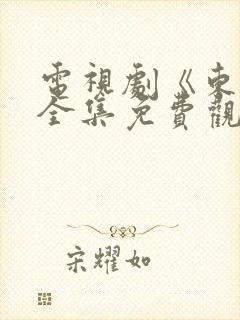 電視劇《東
全集免費觀
宋耀如